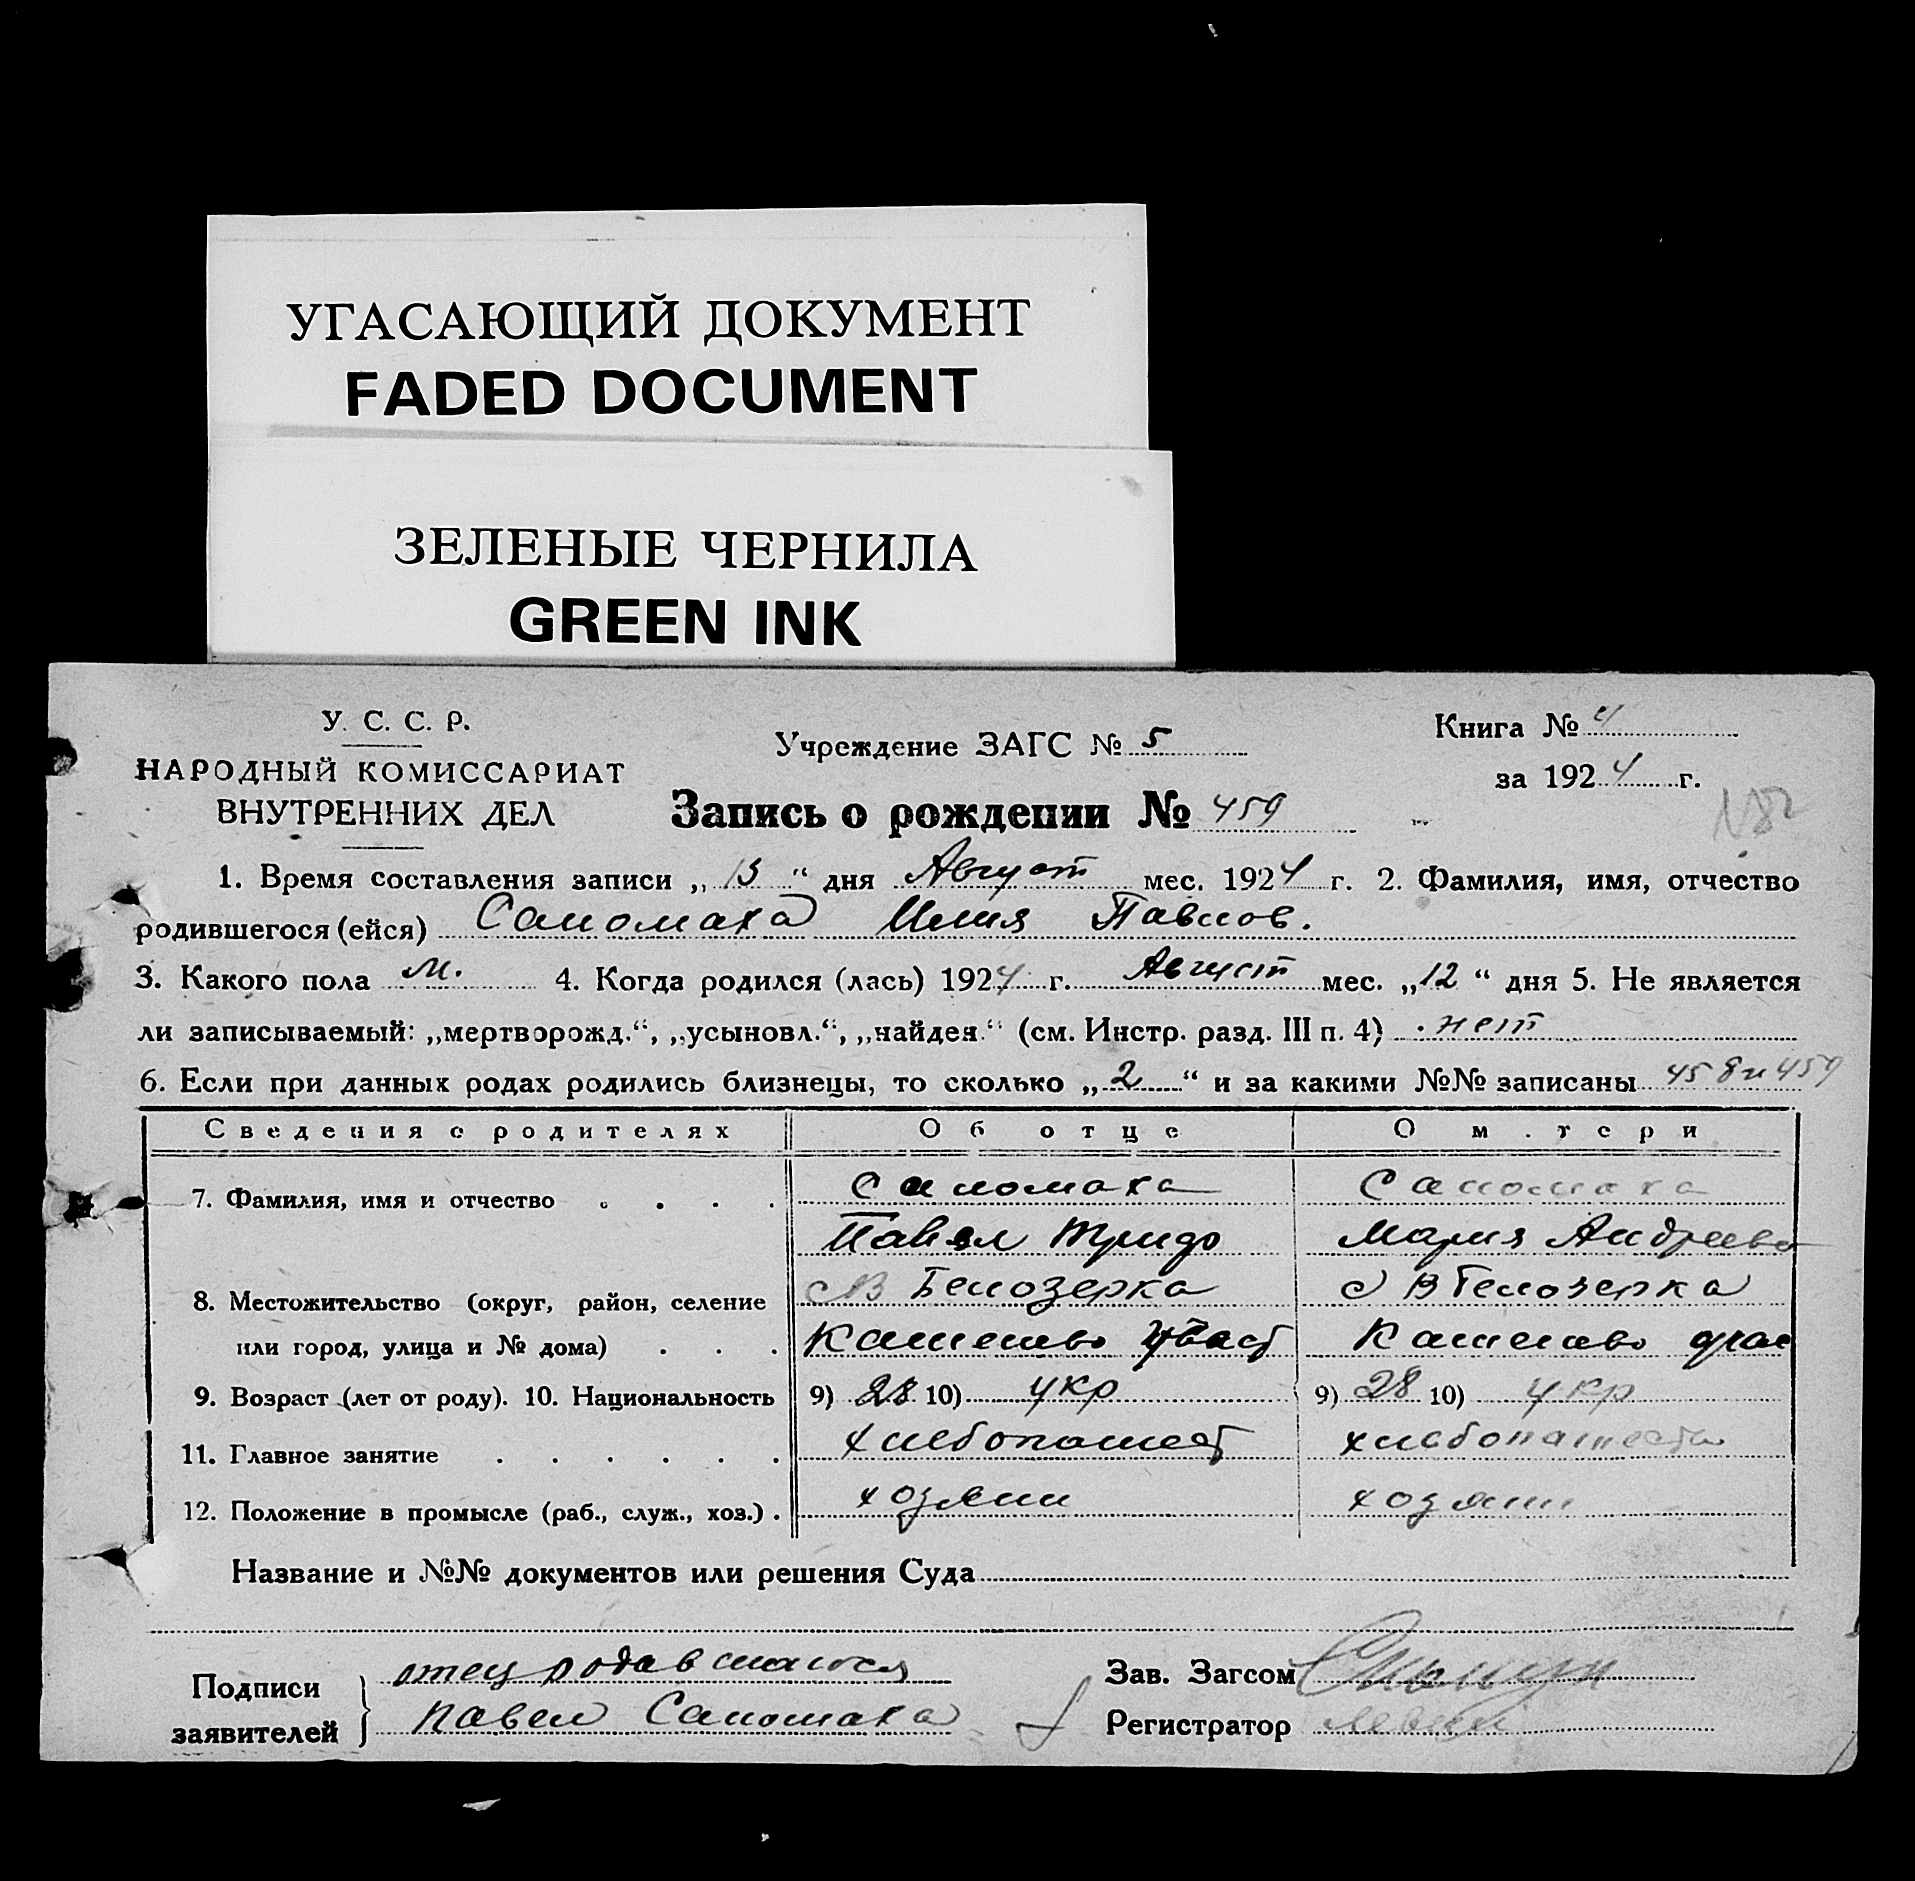 УГАСАЮЩИЙ ДОКУМЕНТ
FADED DOCUMENT
ЗЕЛЕНЫЕ ЧЕРНИЛА
GREEN INK
У. С. С. Р.
НАРОДНЫЙ КОМИССАРИАТ
ВНУТРЕННИХ ДЕЛ
Учреждение ЗАГС № 5
Книга № 4
за 1924 г.
Запись о рождении № 459
N82
1. Время составления записи „ 13 “ дня Август мес. 1924 г. 2. Фамилия, имя, отчество
родившегося (ейся) Саломаха Илия Павлов.
3. Какого пола м. 4. Когда родился (лась) 1924 г. Август мес. „12 “ дня 5. Не является
ли записываемый: „мертворожд.“, „усыновл.“, „найден.“ (см. Инстр. разд. III п. 4) нет
6. Если при данных родах родились близнецы, то сколько „ 2 “ и за какими №№ записаны 458 и 459
Сведения о родителях Об отце О м.тери
7. Фамилия, имя и отчество . . . . Саломаха Саломаха
Павел Мария Андреева
8. Местожительство (округ, район, селение В Белозерка С В Белозерка
или город, улица и № дома) . . . Каменево Каменево
9. Возраст (лет от роду). 10. Национальность 9) 28 10) укр 9) 28 10) укр
11. Главное занятие . . . . . . хлебопашест хлебопашество
12. Положение в промысле (раб., служ., хоз.) . хозяин хозяин
Название и №№ документов или решения Суда
Подписи
заявителей
отец родившагося
Павел Саломаха
Зав. Загсом
Регистратор